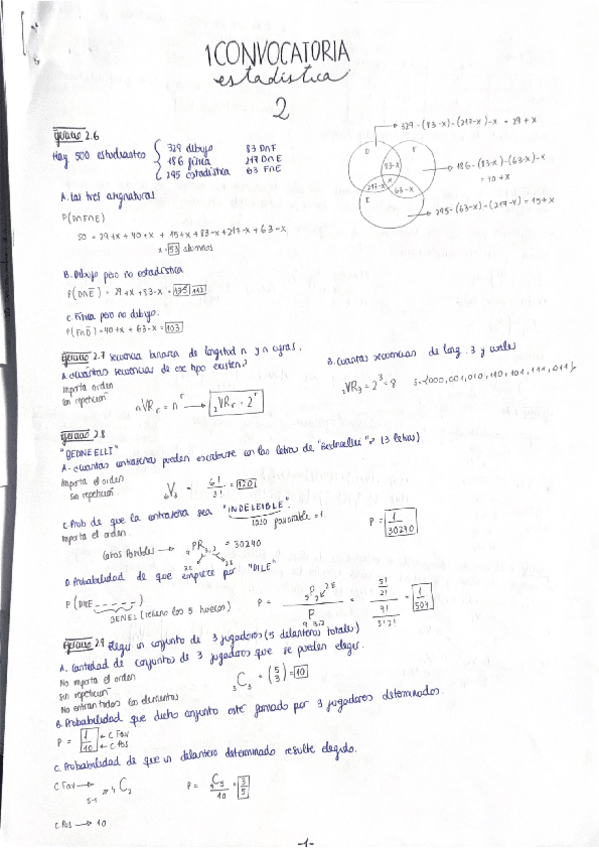 1 CONVOCATORIA
estadística
2
Ejercicio 2.6
Hay 500 estudiantes { 329 dibujo 83 D∩F
186 física 217 D∩E
295 estadística 63 F∩E
329 - (83-x) - (217-x) - x = 29 + x
D
F
83-x
x
217-x
63-x
E
186 - (83-x) - (63-x) - x = 40 + x
295 - (63-x) - (217-x) = 15 + x
A. Las tres asignaturas
P(D∩F∩E)
50 = 29+x + 40+x + 15+x + 83-x + 217-x + 63-x
x = 53 alumnos
B. Dibujo pero no estadística
C. Física pero no dibujo.
P(F∩D̅) = 40+x + 63-x = 103
Ejercicio 2.7 Secuencia binaria de longitud n y n cifras.
A. Cuántas secuencias de ese tipo existen?
Importa orden
Con repetición
nVRr = n^r → 2VRr = 2^r
B. Cuantas secuencias de long. 3 y cuales
2VR3 = 2^3 = 8 S={000, 001, 010, 110, 101, 111, 011}
Ejercicio 2.8
"BEDNEELLI"
A- Cuantas contraseñas pueden escribirse con las letras de "Bedneelli"? (3 letras)
Importa el orden
Sin repetición
6V3 = 6!/3! = 120
C. Prob de que la contraseña sea "INDELEIBLE".
Importa el orden
favorable = 1.
P = 1/30240
Casos Posibles → = 30240
D. Probabilidad de que empiece por "DILE"
P(DILE _ _ _ _ _)
BENEL (relleno los 5 huecos)
P = = = 1/504
Ejercicio 2.9 Elegir un conjunto de 3 jugadores (5 delanteros totales)
A. Cantidad de conjuntos de 3 jugadores que se pueden elegir.
No importa el orden
Sin repetición
No entran todos los elementos
5C3 = (5 3) = 10
B. Probabilidad que dicho conjunto esté formado por 3 jugadores determinados.
P = 1/10 ← C Fav
← C Pos
C. Probabilidad de que un delantero determinado resulte elegido.
C Fav → 4C2
5-1
P = = 3/5
C Pos → 10
-1-